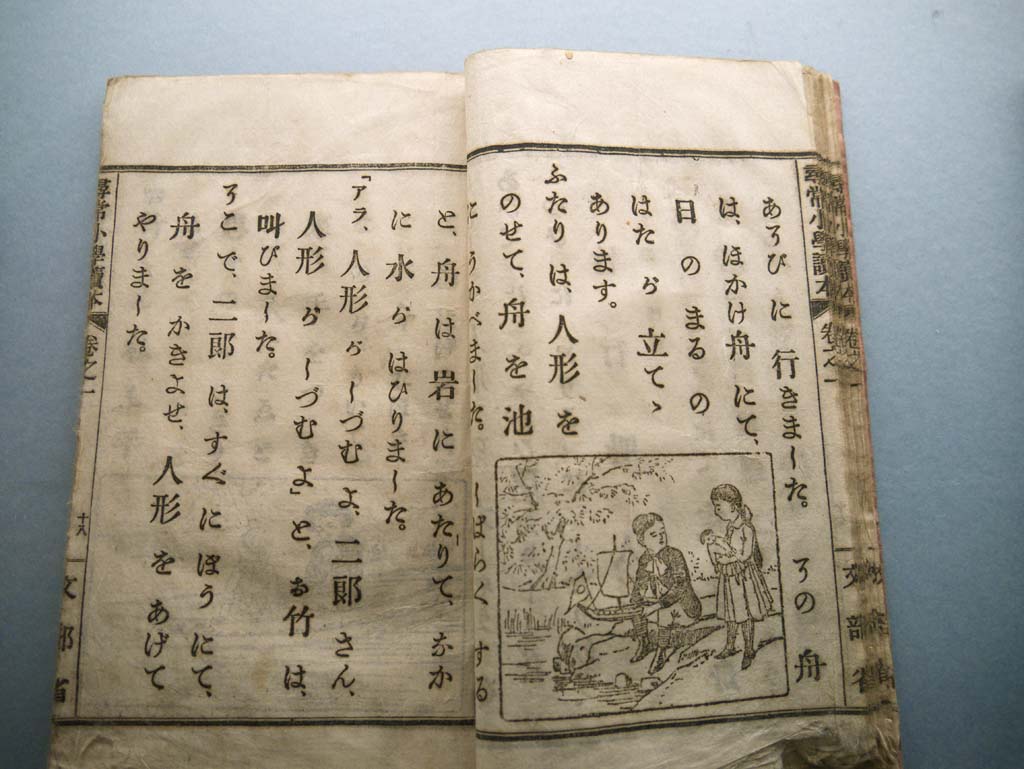 尋常小學讀本 卷之一 文部省
あそびに行きました。その舟
は、ほかけ舟にて、
日のまるの
はたが立てゝ
あります。
ふたりは、人形を
のせて、舟を池
にうかべました。しばらくする
と、舟は岩にあたりて、なか
に水がはひりました。
「アラ、人形がしづむよ、二郎さん、
人形がしづむよ」と、お竹は、
叫びました。
そこで、二郎は、すぐにぼうにて、
舟をかきよせ、人形をあげて
やりました。
尋常小學讀本 卷之一 文部省